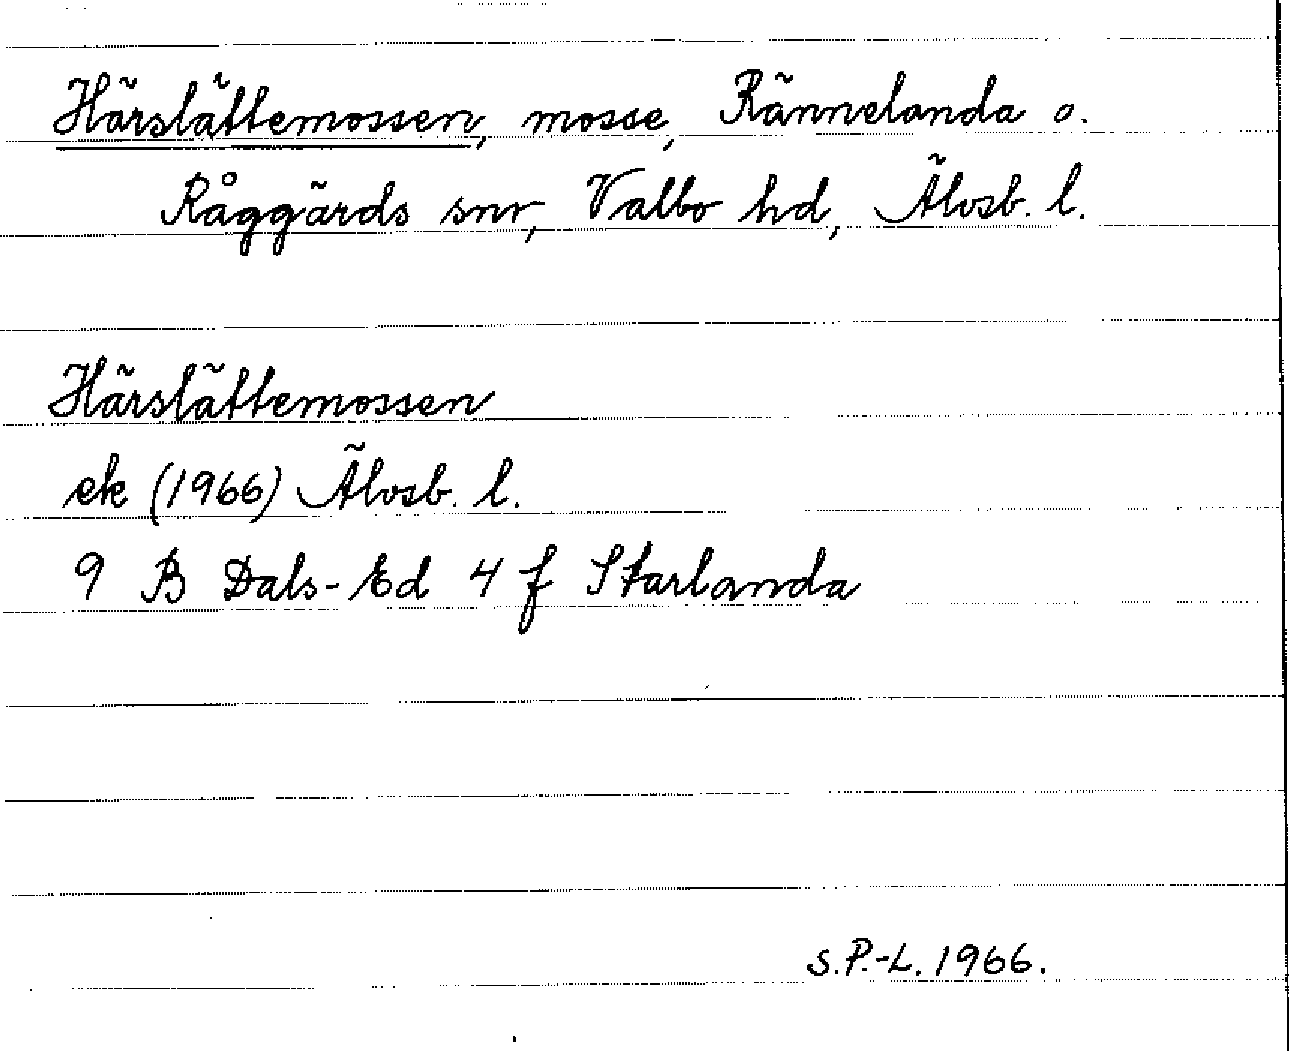 Härslättemossen, mosse, Rännelanda o.
Råggärds snr, Valbo hd, Älvsb. l.
Härslättemossen
ek (1966) Älvsb. l.
9 B Dals-Ed 4 f Starlanda
S.P.-L. 1966.